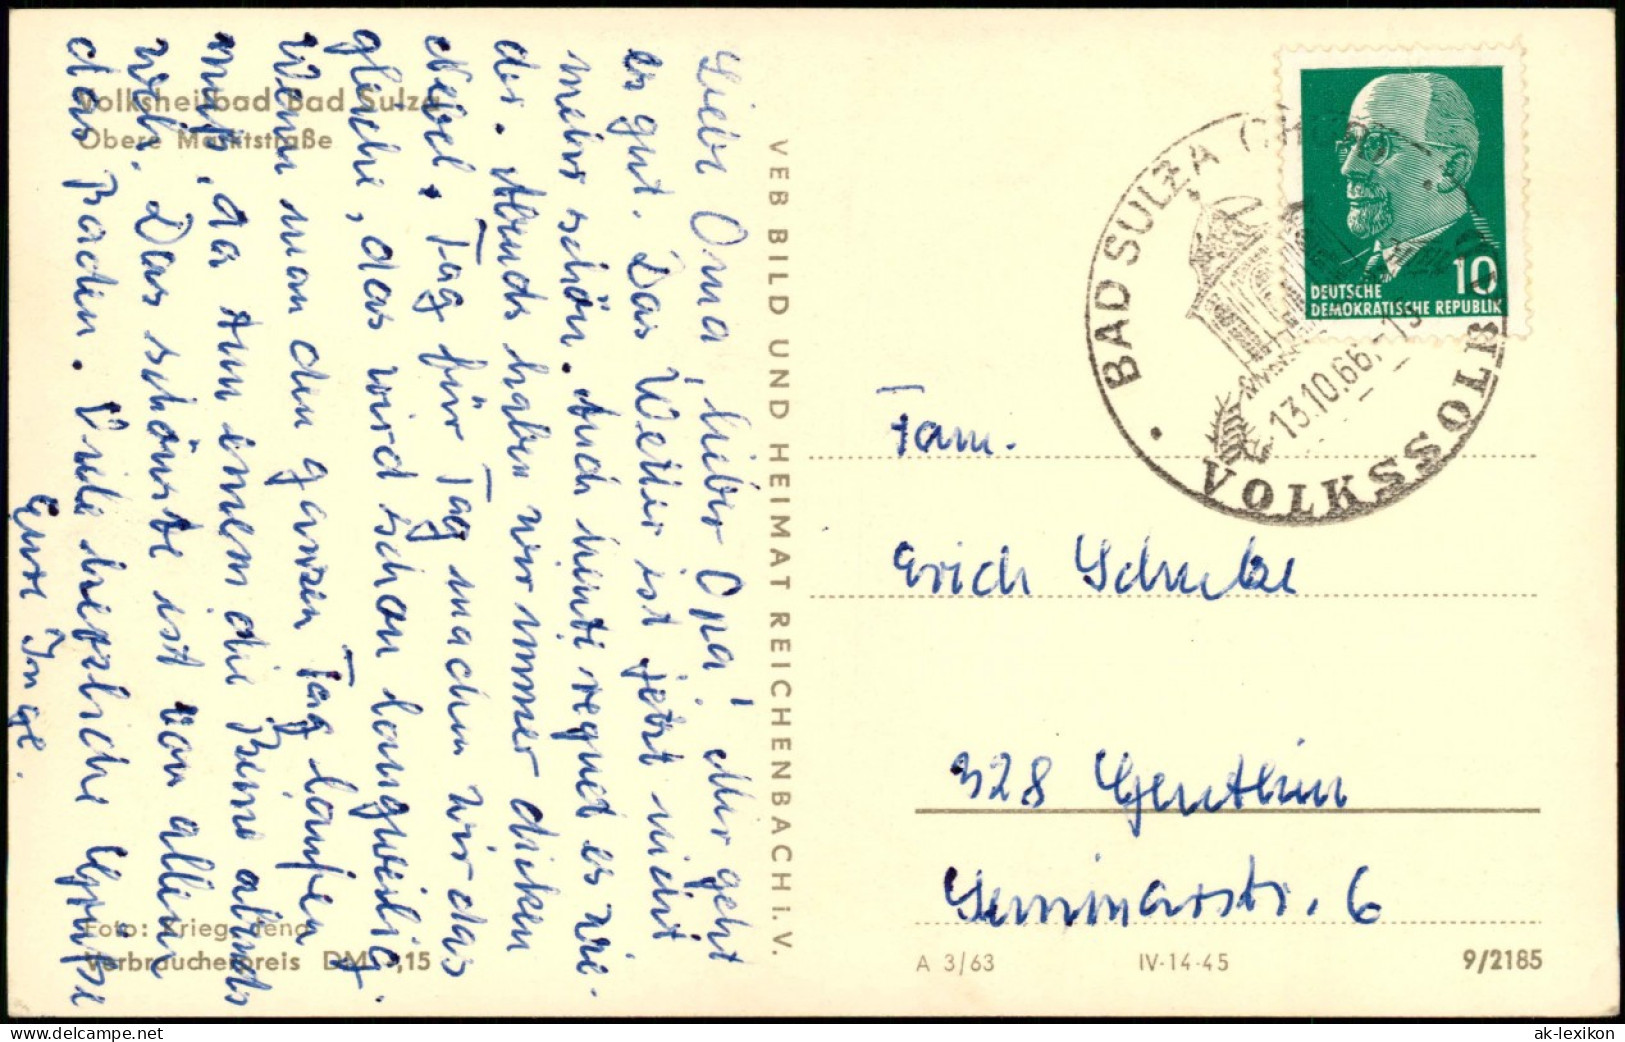 Volksheilbad Bad Sulza
Obere Marktstraße
Liebe Oma, lieber Opa! Mir geht
es gut. Das Wetter ist jetzt nicht
mehr schön. Auch heute regnet es wie-
der. Abends haben wir immer dicken
Nebel. Tag für Tag machen wir das
gleiche, das wird schon langweilig.
Wenn man den ganzen Tag laufen
muß, da tun einem die Beine abends
weh. Das schönste ist von allem
das Baden. Viele herzliche Grüße
Eure Inge.
Foto: Krieg, Jena
Verbraucherpreis DM 0,15
VEB BILD UND HEIMAT REICHENBACH I. V.
BAD SULZA
VOLKSSOLBAD
13.10.66
10
DEUTSCHE
DEMOKRATISCHE REPUBLIK
Fam.
Erich
328 Genthin
Seminarstr. 6
A 3/63 IV-14-45 9/2185
www.delcampe.net
ak-lexikon